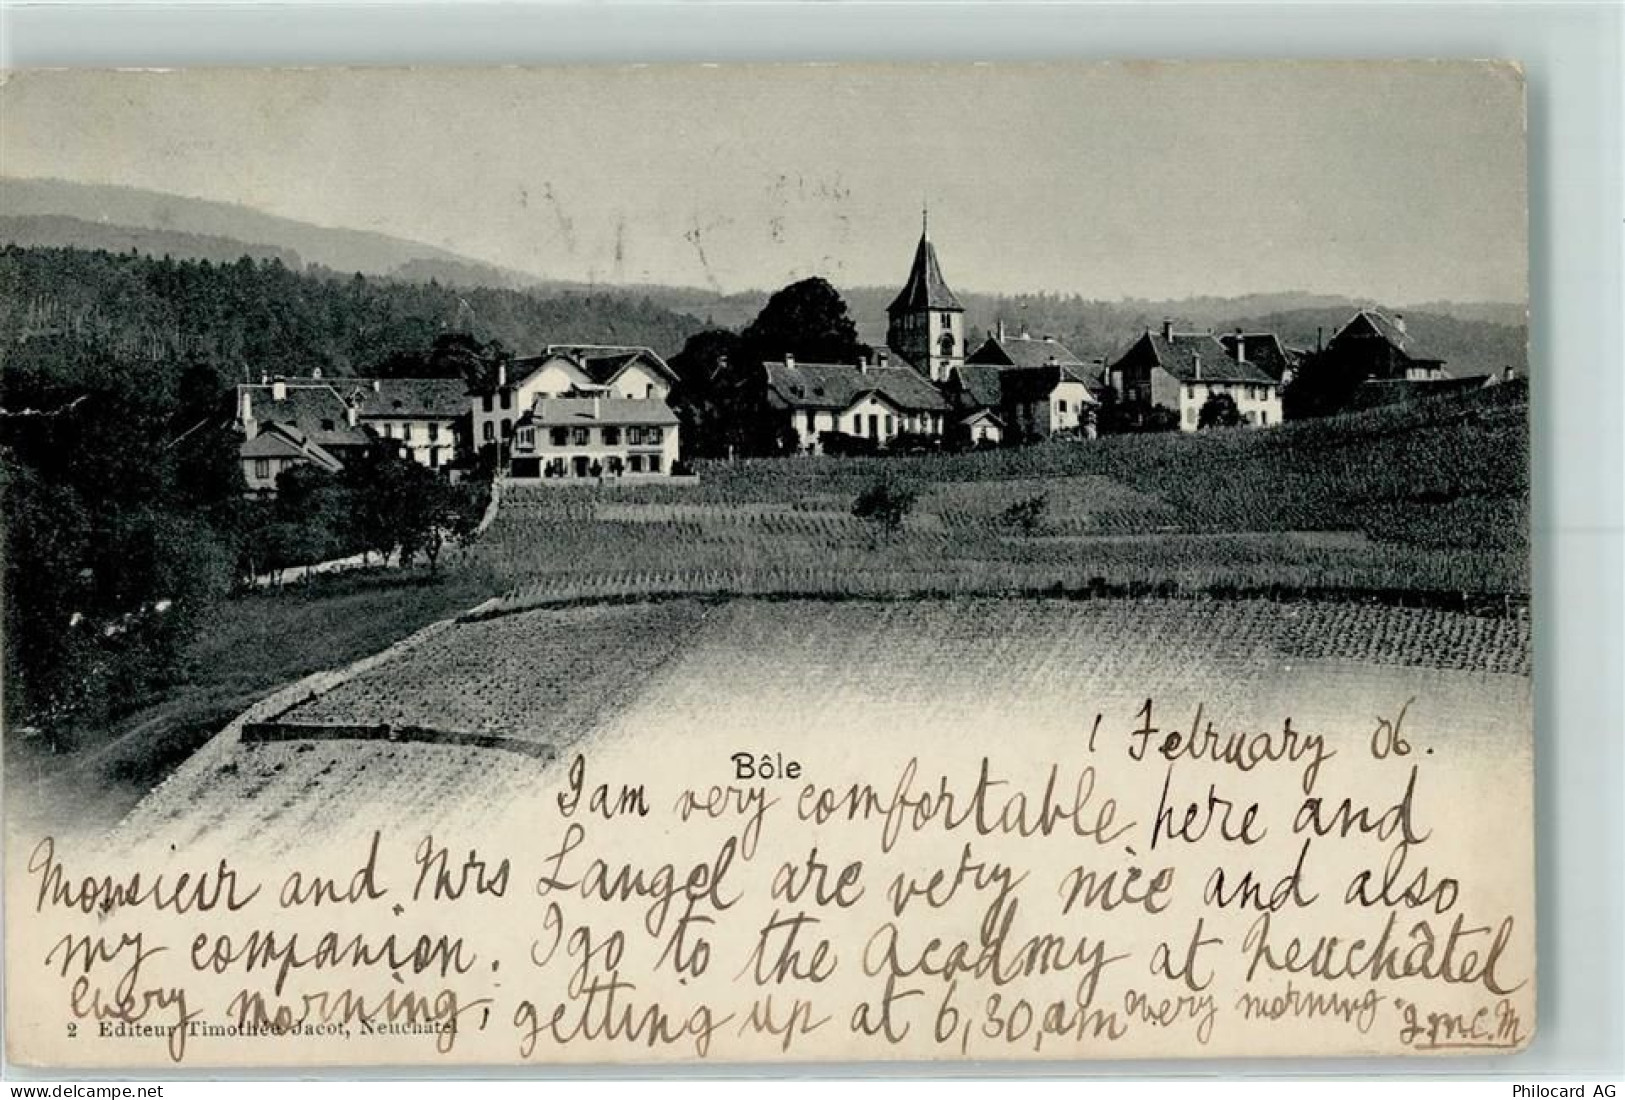 Bôle
1 February 06.
I am very comfortable here and
Monsieur and Mrs Langel are very nice and also
my companion. I go to the Acadmy at Neuchâtel
every morning, getting up at 6,30, am "very morning"
2 Editeur Timothée Jacot, Neuchâtel
Philocard AG
delcampe.net